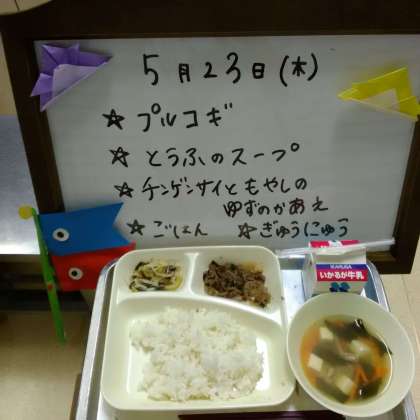 5月23日(木)
☆ プルコギ
☆ とうふのスープ
☆ チンゲンサイともやしの
ゆずのかあえ
☆ ごはん ☆ ぎゅうにゅう
IKARUGA
いかるが牛乳